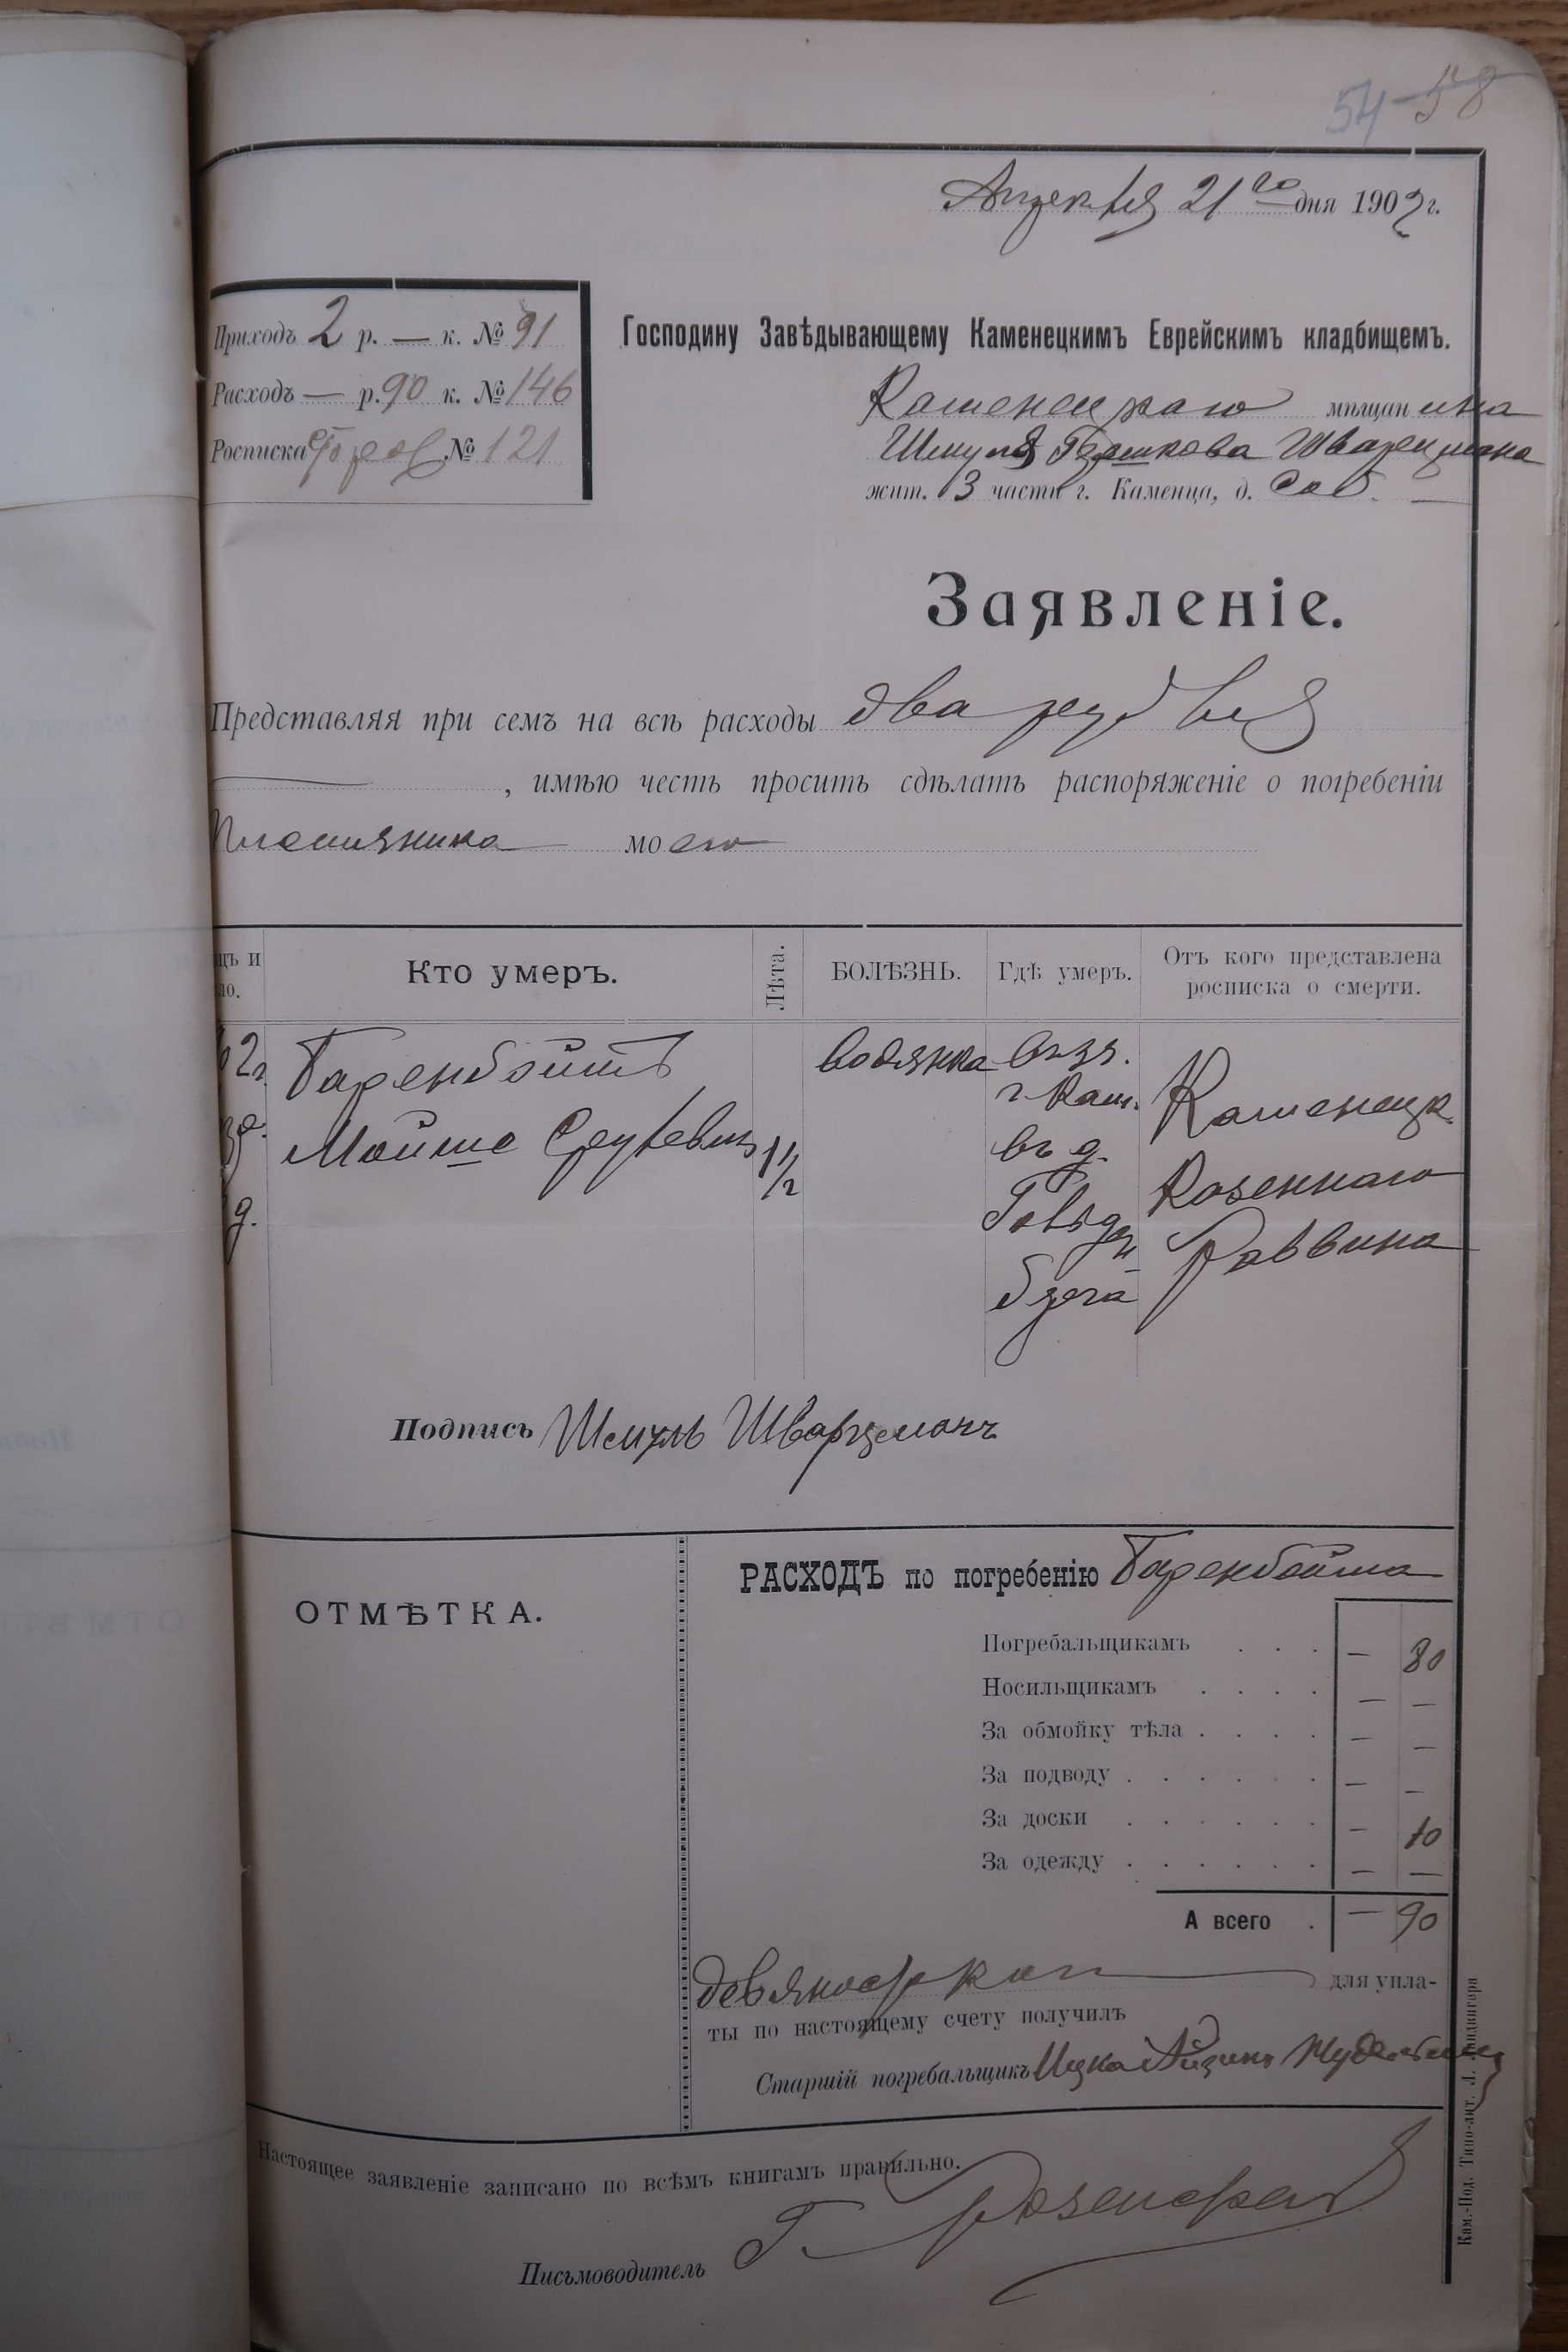 54 58
Апреля 21го дня 1902 г.
Приходъ 2 р. — к. № 91
Расходъ — р. 90 к. № 146
Росписка № 121
Господину Завѣдывающему Каменецкимъ Еврейскимъ кладбищемъ.
Каменецкаго мѣщанина
Шмуля Гершкова Шварцмана
жит. 3 части г. Каменца, д. Соб. —
Заявленіе.
Представляя при семъ на всѣ расходы два рубля
, имѣю честь просить сдѣлать распоряженіе о погребеніи
Племянника моего
цъ и
ло.
Кто умеръ.
Лѣта.
БОЛѢЗНЬ.
Гдѣ умеръ.
Отъ кого представлена
росписка о смерти.
Баренбоймъ
Мойше Срулевичъ
1 1/2
водянка
г. Кам.
въ д.
Каменецк.
Казеннаго
Раввина
Подпись Шмуль Шварцманъ
ОТМѢТКА.
РАСХОДЪ по погребенію Баренбойма
Погребальщикамъ . . . — 80
Носильщикамъ . . . . — —
За обмойку тѣла . . . . — —
За подводу . . . . . . — —
За доски . . . . . . — 10
За одежду . . . . . . — —
А всего . — 90
девяносто коп для упла-
ты по настоящему счету получилъ
Старшій погребальщикъ Ицко
Настоящее заявленіе записано по всѣмъ книгамъ правильно.
Письмоводитель Г.
Кам.-Под. Типо-лит. Л.